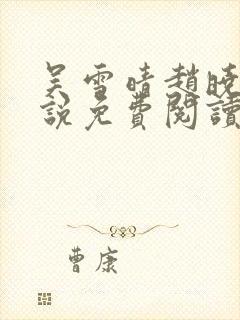 吴雪晴趙曉
說免費閱讀
曹康